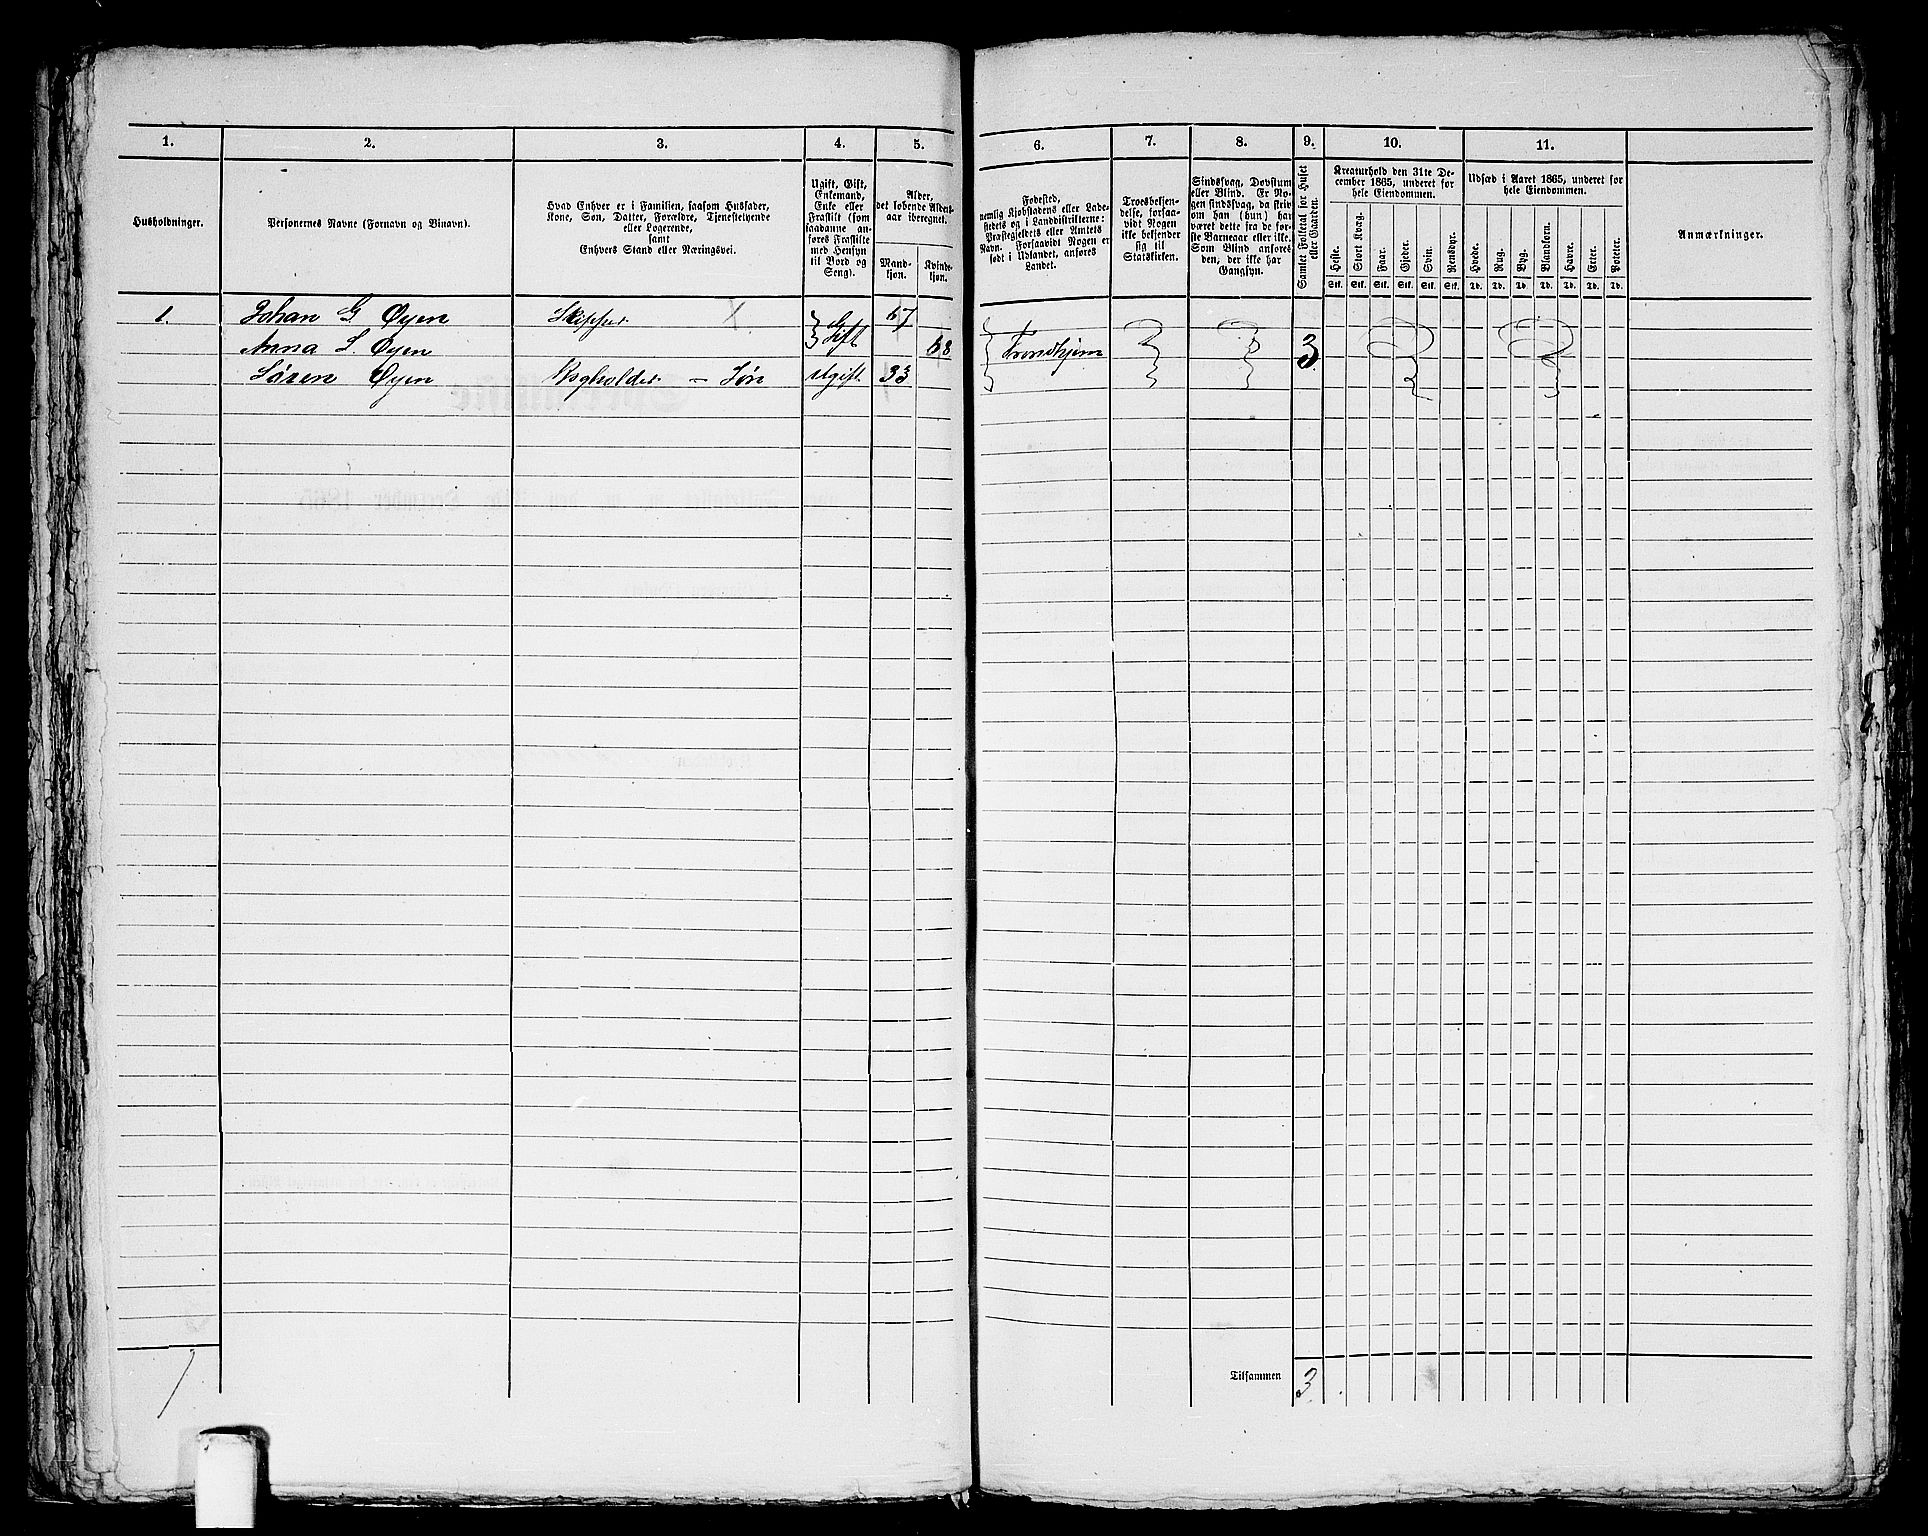 1. 2. 3. 4. 5. 6. 7. 8. 9. 10. 11.
Husholdninger.
Personernes Navne (Fornavn og Binavn).
Hvad Enhver er i Familien, saasom Husfader,
Kone, Søn, Datter, Forældre, Tjenestetyende
eller Logerende,
samt
Enhvers Stand eller Næringsvei.
Ugift, Gift,
Enkemand,
Enke eller
Fraskilt (som
saadanne an-
føres Fraskilte
med Hensyn
til Bord og
Seng).
Alder,
det løbende Alders-
aar iberegnet.
Mand-
kjøn.
Kvinde-
kjøn.
Fødested,
nemlig Kjøbstadens eller Lade-
stedets og i Landdistrikterne:
Præstegjeldets eller Amtets
Navn. Forsaavidt Nogen er
født i Udlandet, anføres
Landet.
Troesbekjen-
delse, forsaa-
vidt Nogen
ikke bekjender
sig til
Statskirken.
Sindssvag, Døvstum
eller Blind. Er No-
gen sindssvag, da skriv
om han (hun) har
været dette fra de før-
ste Barneaar eller ikke.
Som Blind anføres
den, der ikke har
Gangsyn.
Samlet Folketal for Huset
eller Gaarden.
Kreaturhold den 31te De-
cember 1865, underet for
hele Eiendommen.
Heste. Stort Kvæg. Faar. Gjeder. Svin. Rensdyr.
Stk. Stk. Stk. Stk. Stk. Stk.
Udsæd i Aaret 1865, underet for
hele Eiendommen.
Hvede. Rug. Byg. Blandkorn. Havre. Erter. Poteter.
Td. Td. Td. Td. Td. Td. Td.
Anmærkninger.
1. Johan G Øyen Skipper X Gift 67 Trondhjem 3
Anna S. Øyen 68
Søren Øyen Bogholder - Søn Ugift 33
Tilsammen 3
1